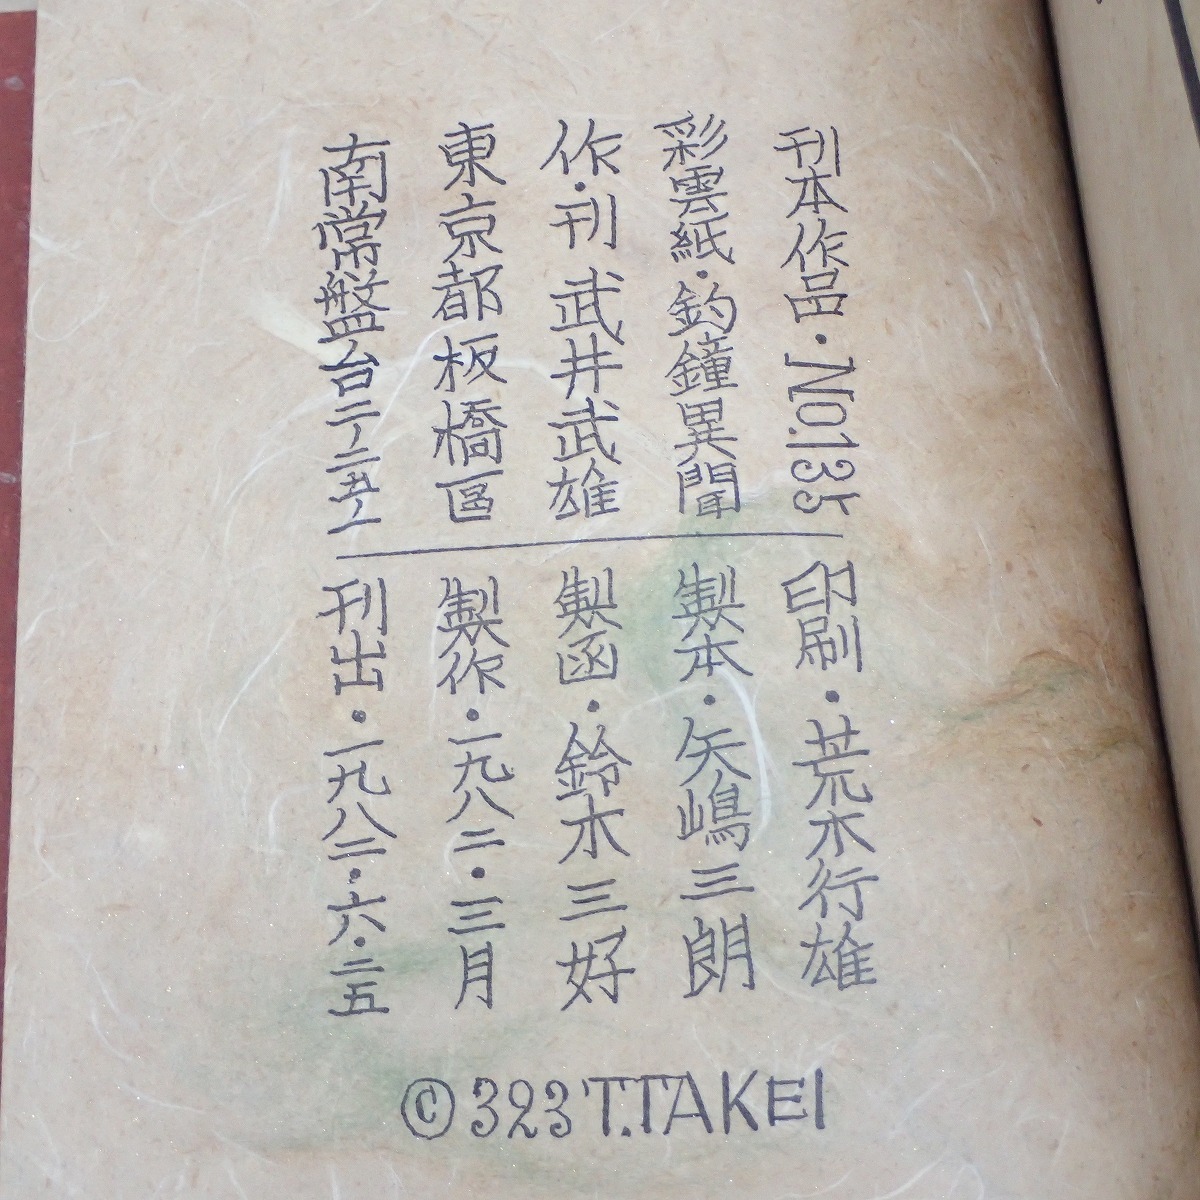 刊本作品・No.135
彩雲紙・釣鐘異聞
作・刊 武井武雄
東京都板橋區
南常盤台二ノ二五ノ一
印刷・荒木行雄
製本・矢嶋三朗
製函・鈴木三好
製作・一九八二・三月
刊出・一九八二・六・二五
© 323 T.TAKEI